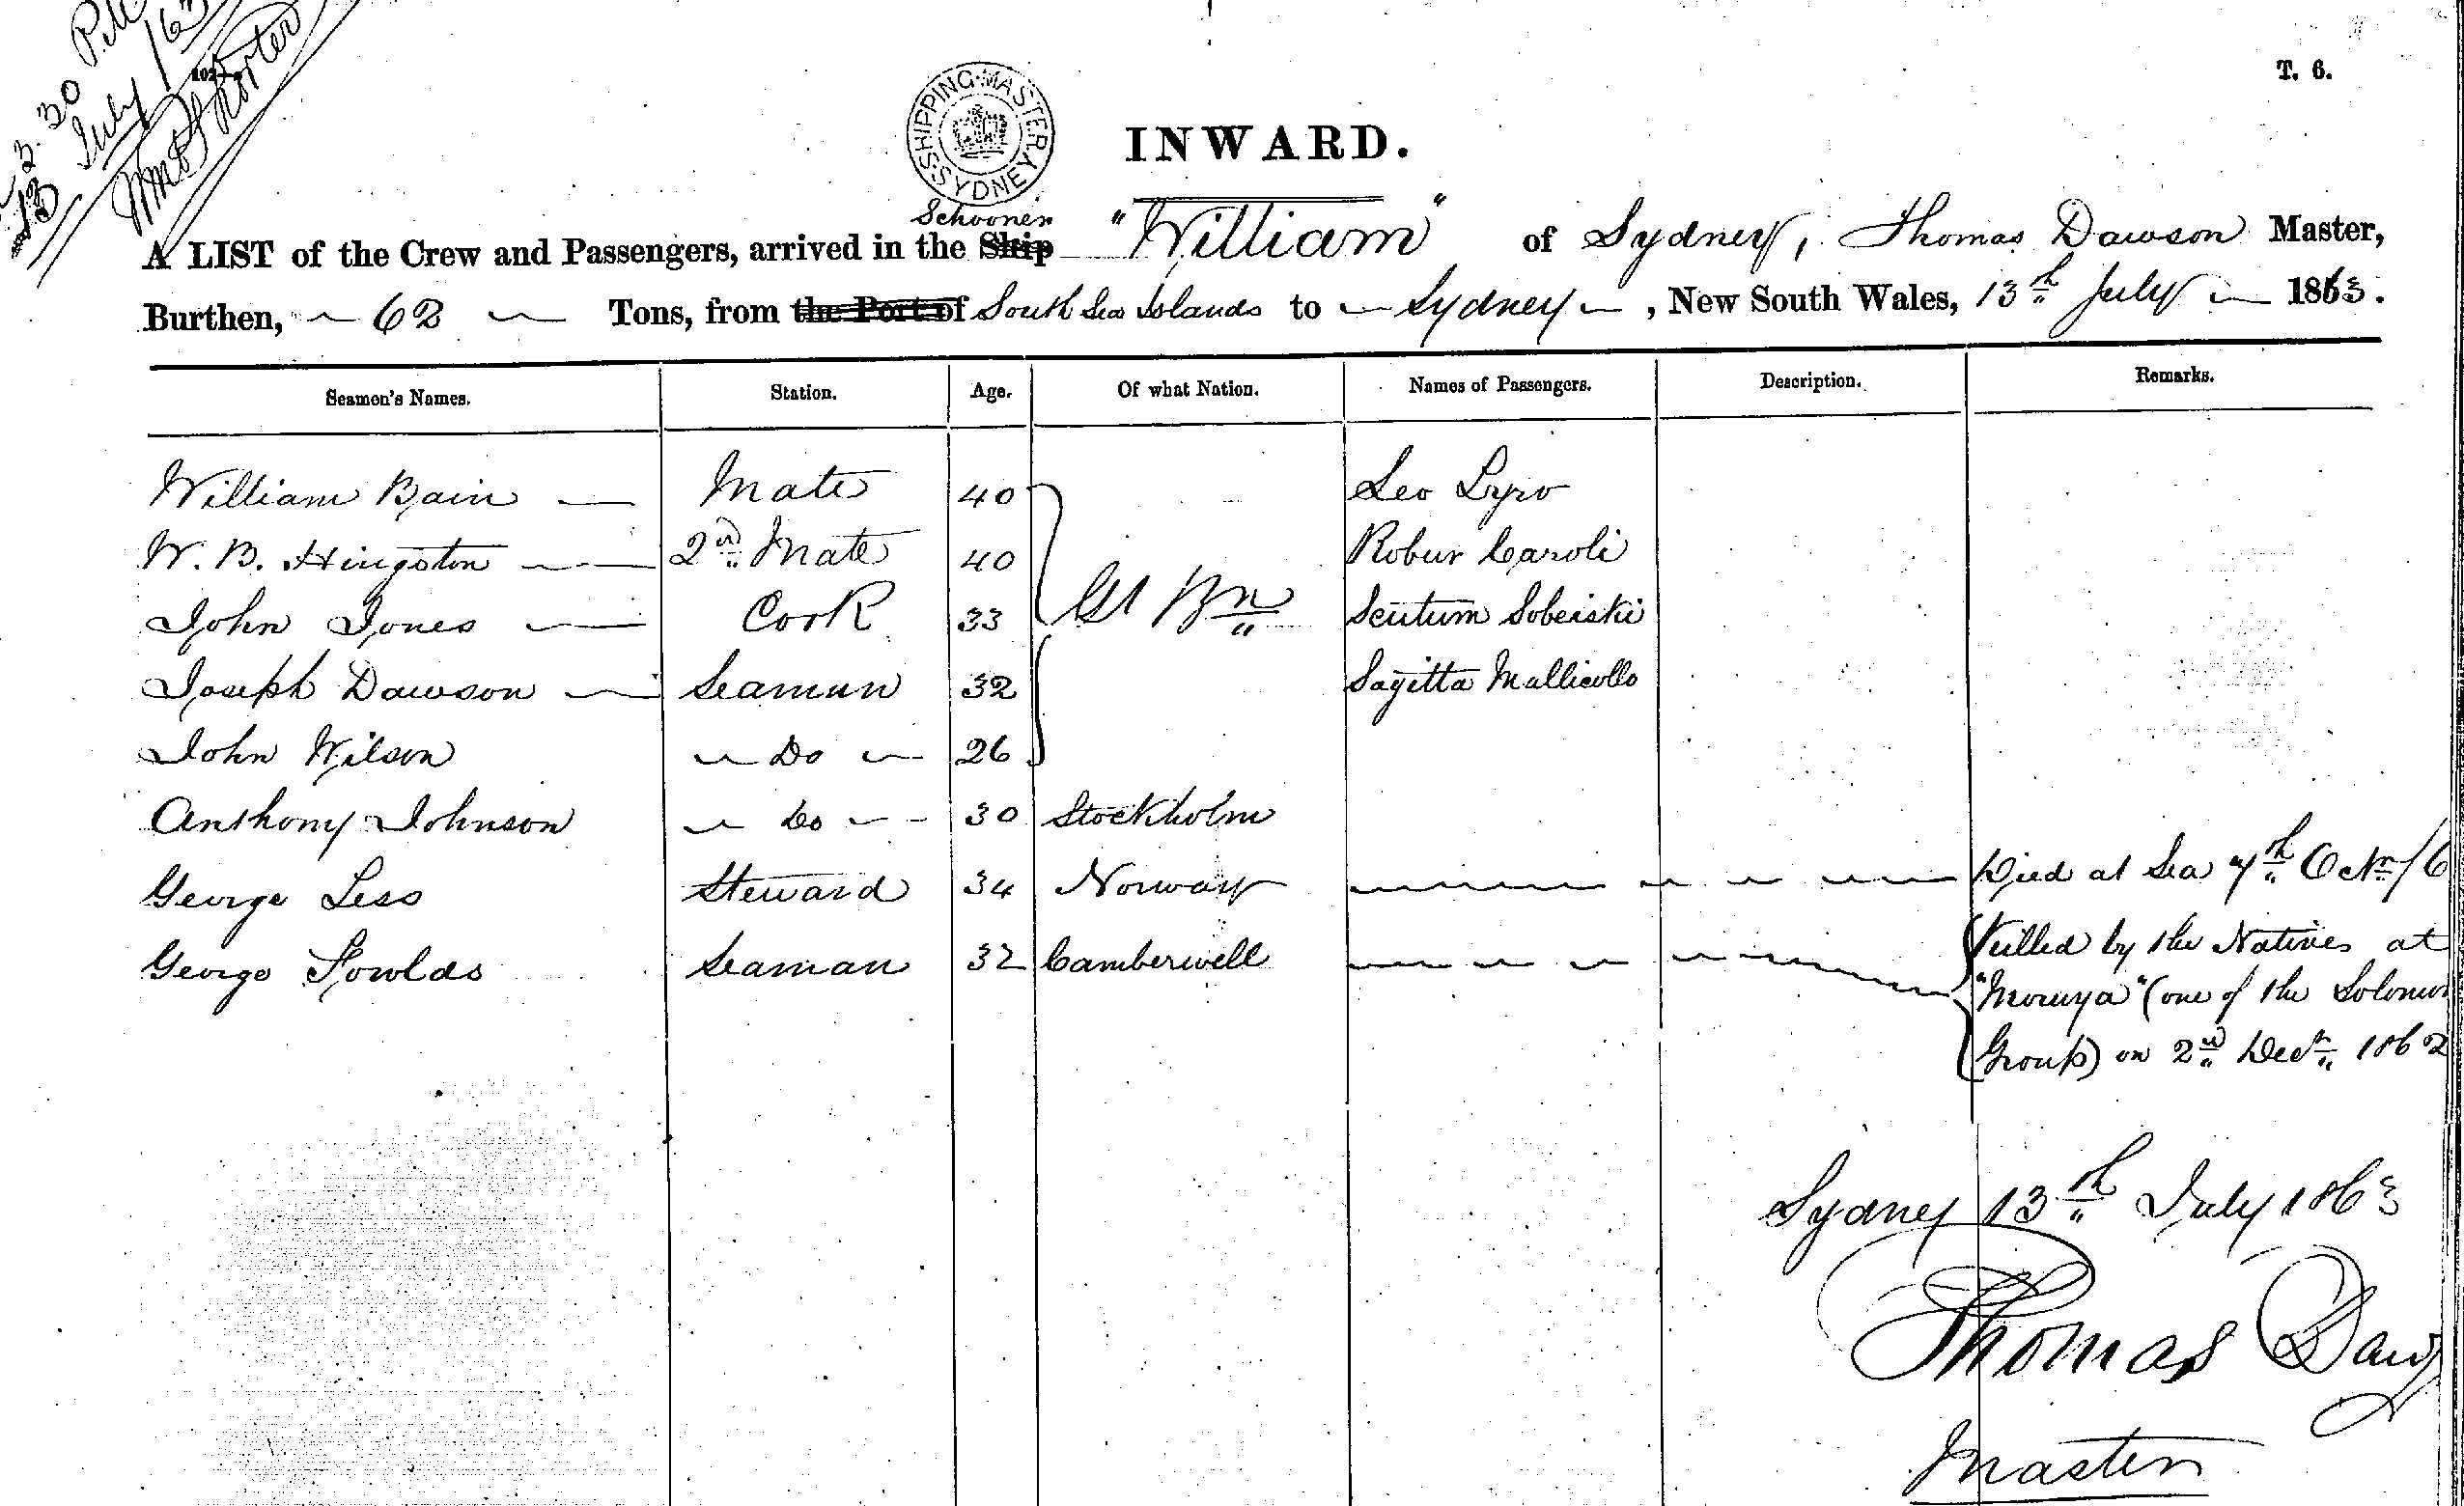 2.30 P.M.
13 July/63
T. 6.
SHIPPING MASTER SYDNEY
INWARD.
Schooner
A LIST of the Crew and Passengers, arrived in the Ship "William" of Sydney, Thomas Dawson Master,
Burthen, 62 Tons, from the Port of South Sea Islands to Sydney, New South Wales, 13th July 1863.
Seamen's Names. Station. Age. Of what Nation. Names of Passengers. Description. Remarks.
William Bain Mate 40 Leo Lyro
W. B. Hingston 2nd Mate 40 Robur Caroli
John Jones Cook 33 Gt Bn Scutum Sobeiski
Joseph Dawson Seaman 32 Sagitta Mallicollo
John Wilson Do 26
Anthony Johnson Do 30 Stockholm
George Less Steward 34 Norway Died at Sea 7th Octr/6
George Fowlds Seaman 32 Camberwell Killed by the Natives at
(one of the Solomon
Group) on 2nd Decr 1862
Sydney 13th July 1863
Thomas Daw
Master